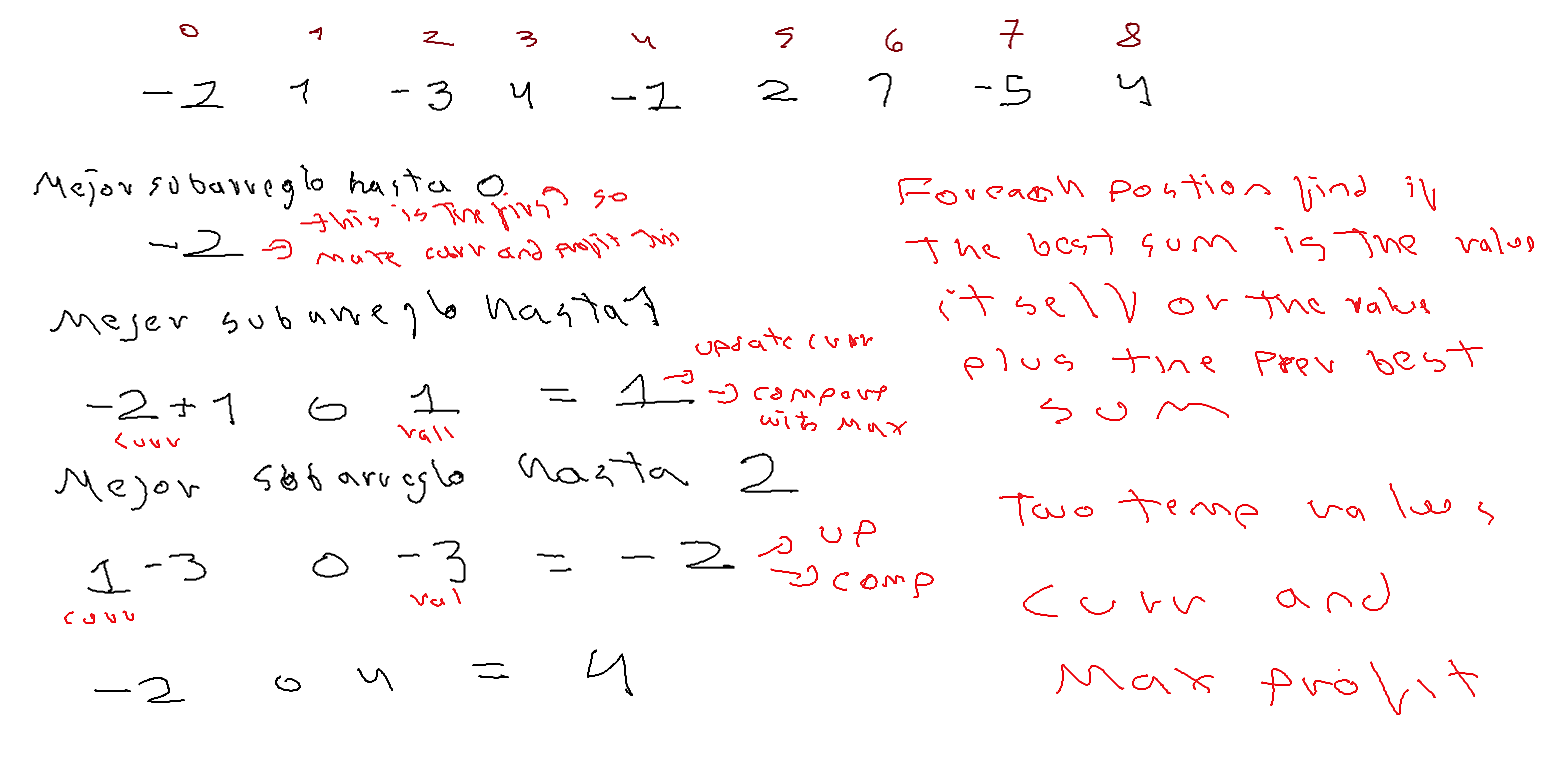 0 1 2 3 4 5 6 7 8
-2 1 -3 4 -1 2 1 -5 4
Mejor subarreglo hasta 0
-2 → this is the first so
make curr and profit this
Mejor subarreglo hasta 1
-2+1 o 1 = 1 → update curr
→ compare
with max
curr val
Mejor subarreglo hasta 2
1-3 o -3 = -2 → up
→ comp
curr val
-2 o 4 = 4
Foreach postion find if
the best sum is the value
itself or the value
plus the prev best
sum
Two temp values
curr and
Max profit